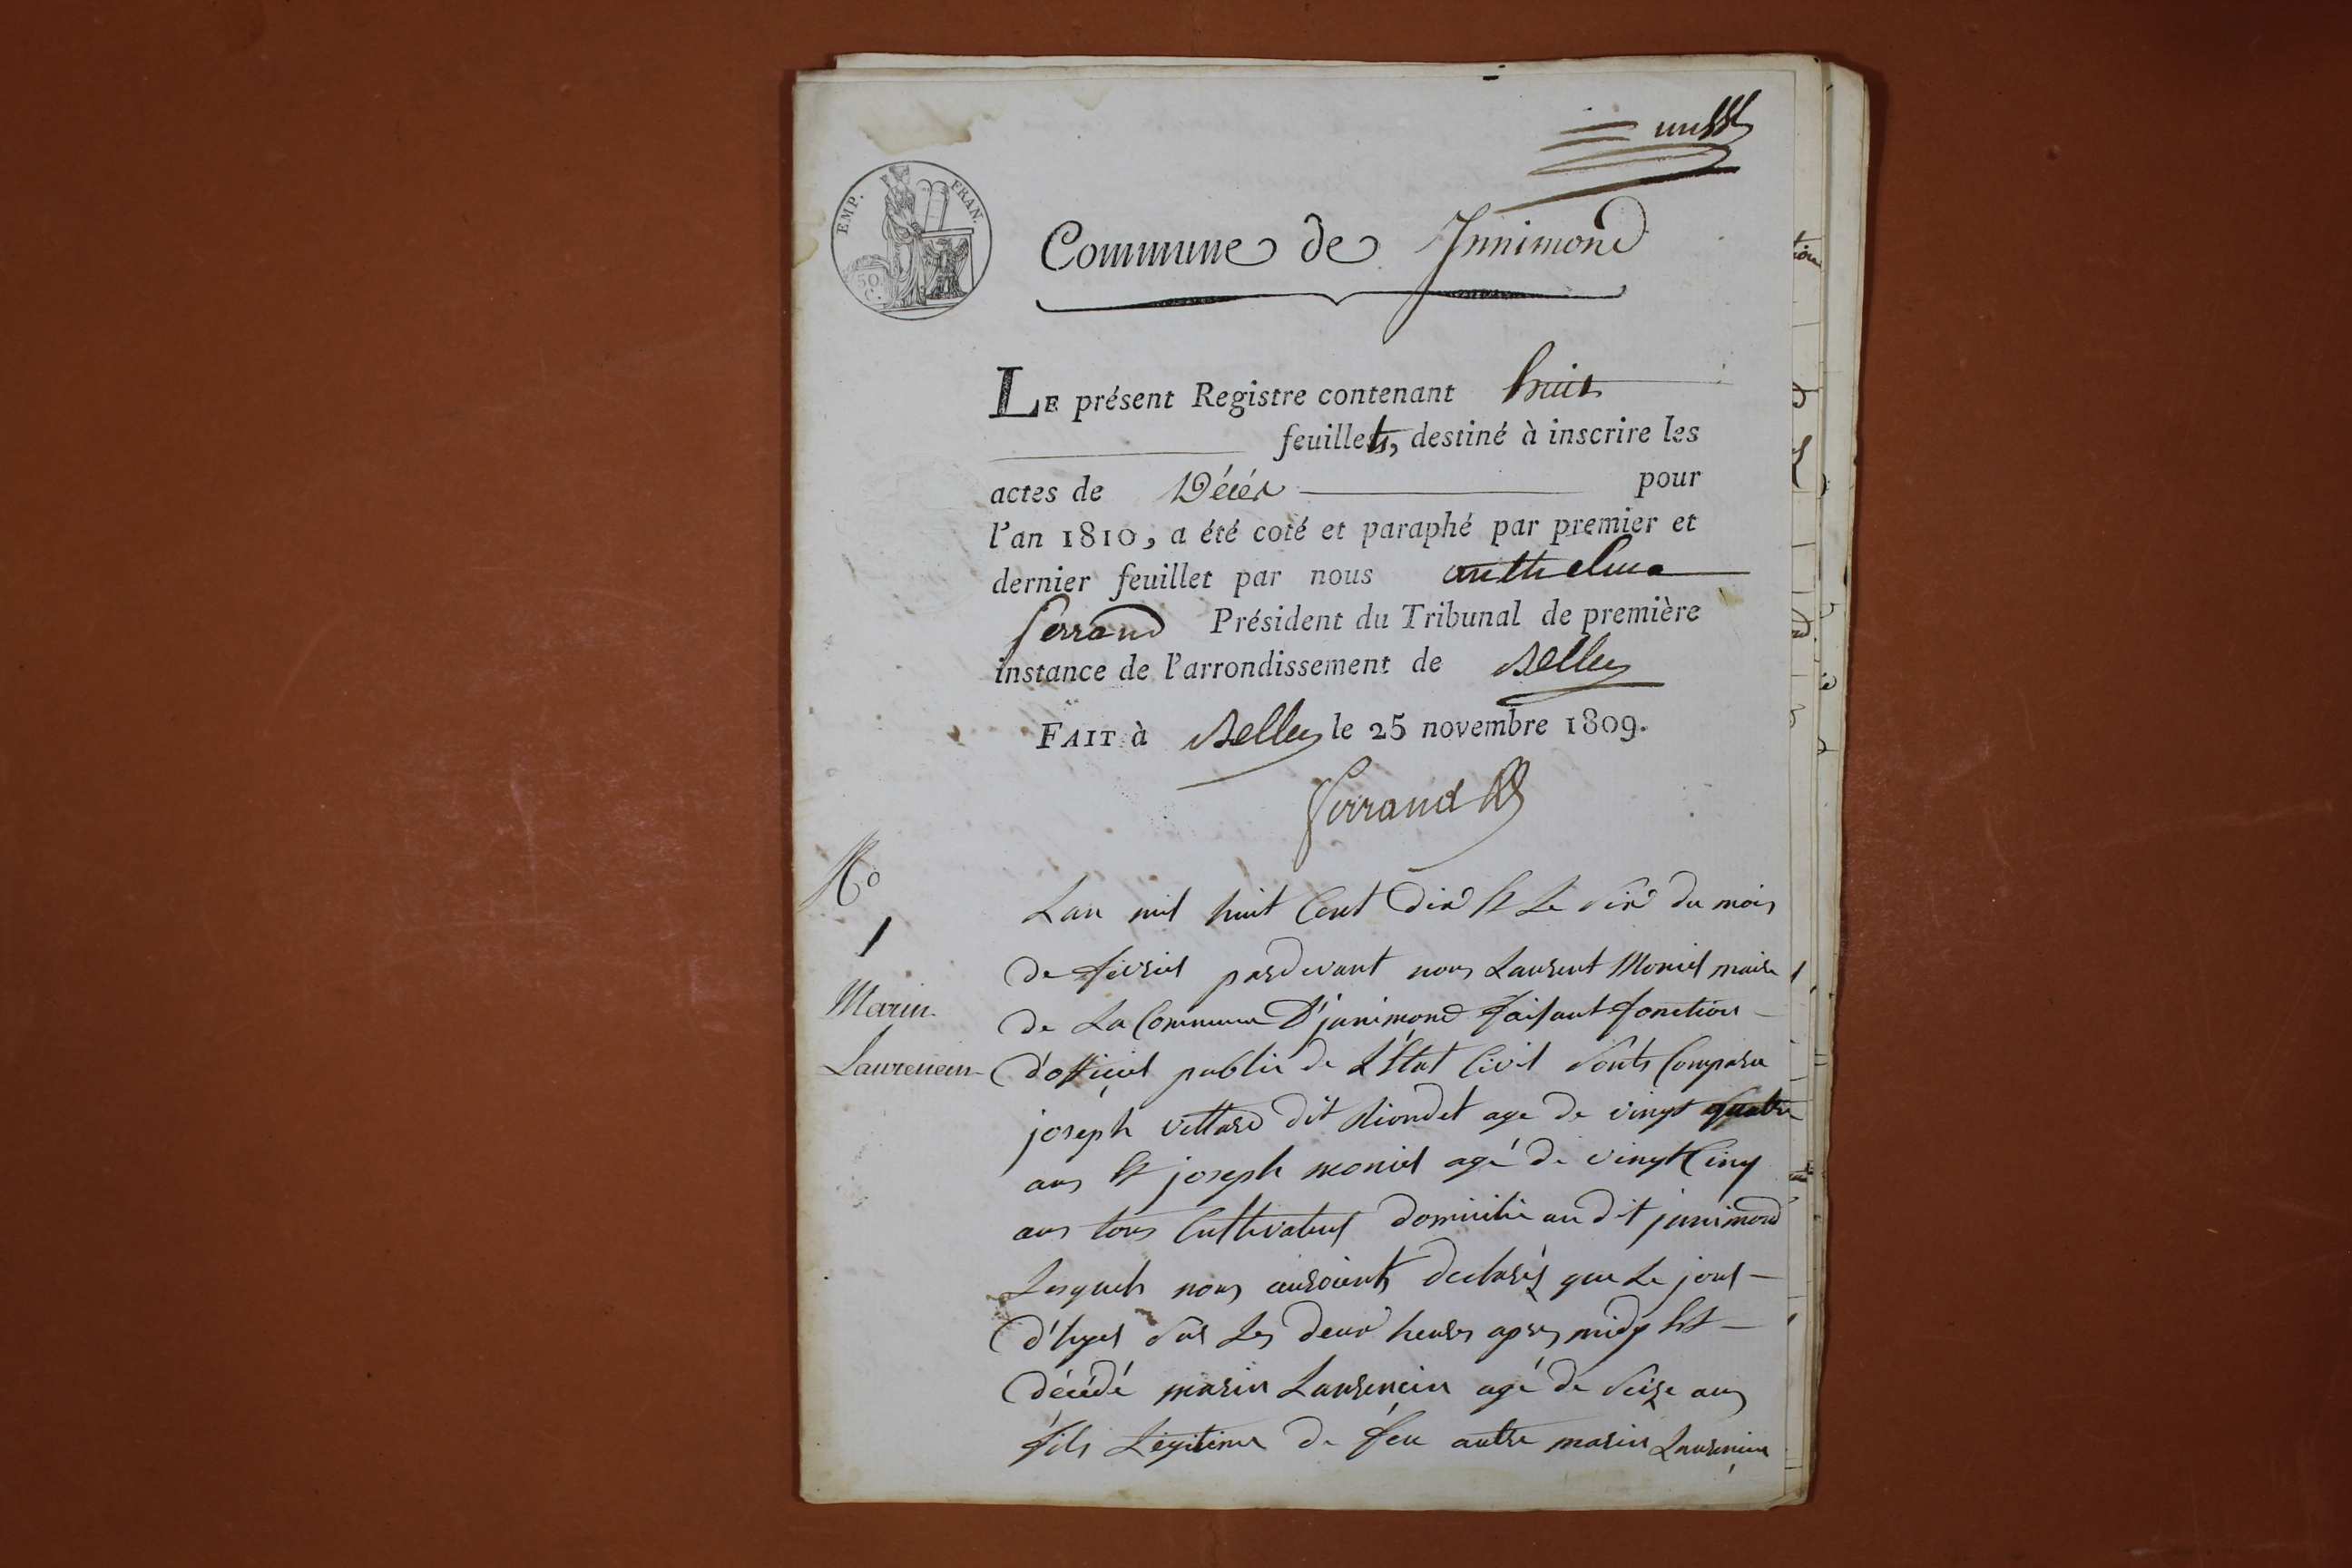 EMP. FRAN.
50 C.
Commune de Innimond
LE présent Registre contenant huit
feuillets, destiné à inscrire les
actes de Décés pour
l'an 1810, a été coté et paraphé par premier et
dernier feuillet par nous anthelme
ferrand Président du Tribunal de première
instance de l'arrondissement de Belley
FAIT à Belley le 25 novembre 1809.
ferrand
No
1
Marin
Laurencin
Lan mil huit Cent dix et Le six du mois
de février pardevant nous Laurent Monier maire
de La Commune D'jnnimond faisant fonction
d'officier public de L'état Civil sonts Comparu
joseph vettard dit Riondet age de vingt quatre
ans et joseph monier agé de vingt Cinq
ans tous Cultivateur domicilié au dit jnnimond
Lesquels nous auroients declarés que Le jour
d'hyer sur Les deux heures apres midy est
décédé marin Laurencin agé de seize ans
fils Légitime de feu autre marin Laurencin